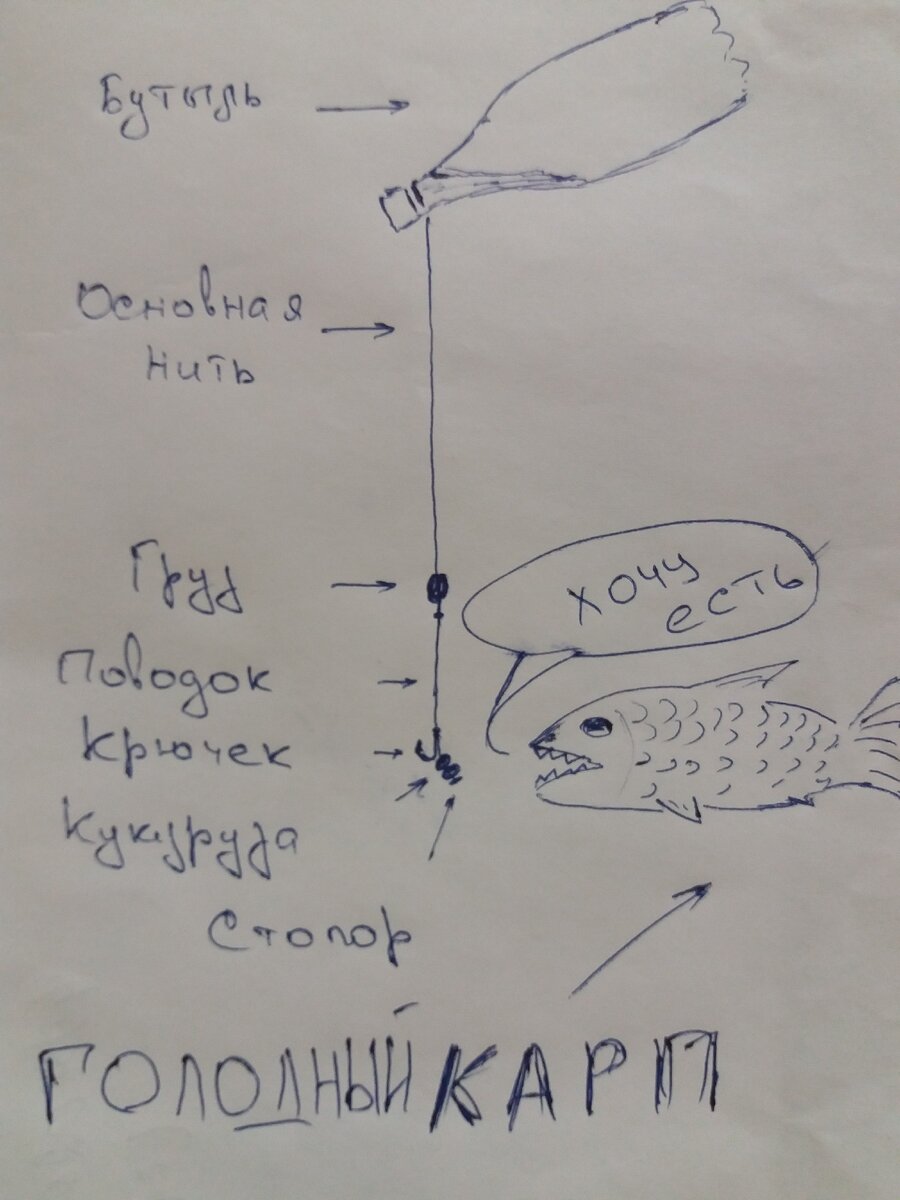 Бутыль
Основная
нить
Груз
Хочу
есть
Поводок
Крючек
Кукуруза
Стопор
ГОЛОДНЫЙ КАРП